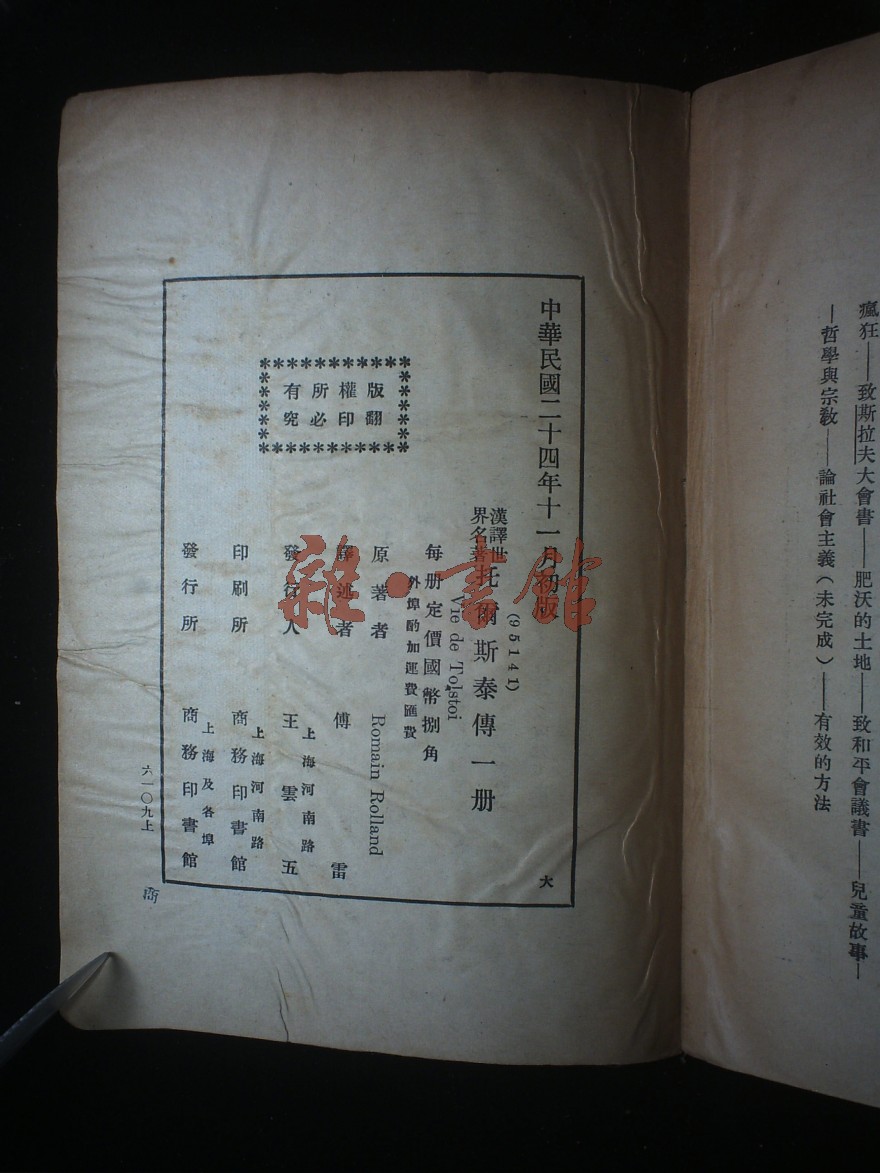 瘋狂——致斯拉夫大會書——肥沃的土地——致和平會議書——兒童故事—
—哲學與宗教——論社會主義(未完成)——有效的方法
中華民國二十四年十一月初版
(95141)
大
漢譯世
界名著
托爾斯泰傳一册
Vie de Tolstoi
每册定價國幣捌角
外埠酌加運費匯費
版權所有
翻印必究
原著者 Romain Rolland
譯述者 傅雷
上海河南路
發行人 王雲五
上海河南路
印刷所 商務印書館
上海及各埠
發行所 商務印書館
六一〇九上
商
雜·書館